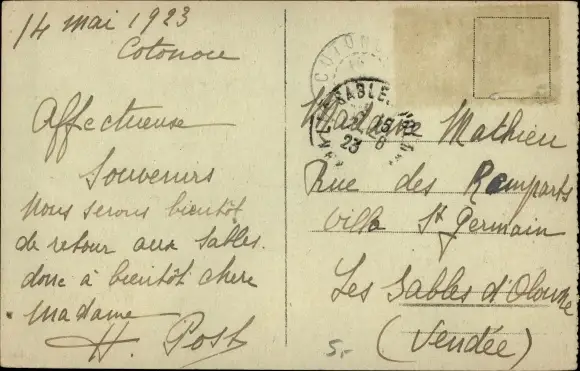 14 mai 1923
Cotonou
Affectueuse
Souvenirs
Nous serons bientôt
de retour aux Sables.
donc à bientôt chère
madame
H. Post
COTONO
SABLE
23
Madame Mathieu
Rue des Remparts
Villa St Germain
Les Sables d'Olonne
(Vendée)
5,-